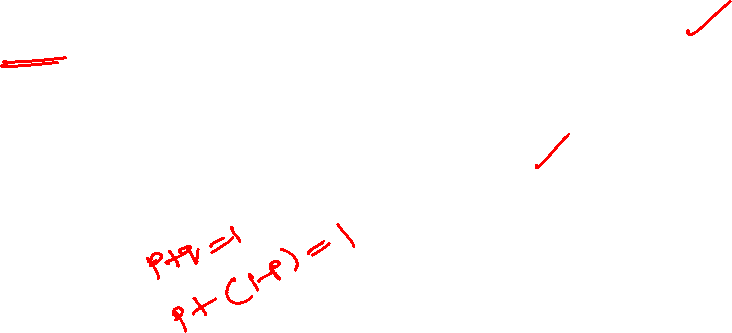 p+q=1
p+(1-p)=1